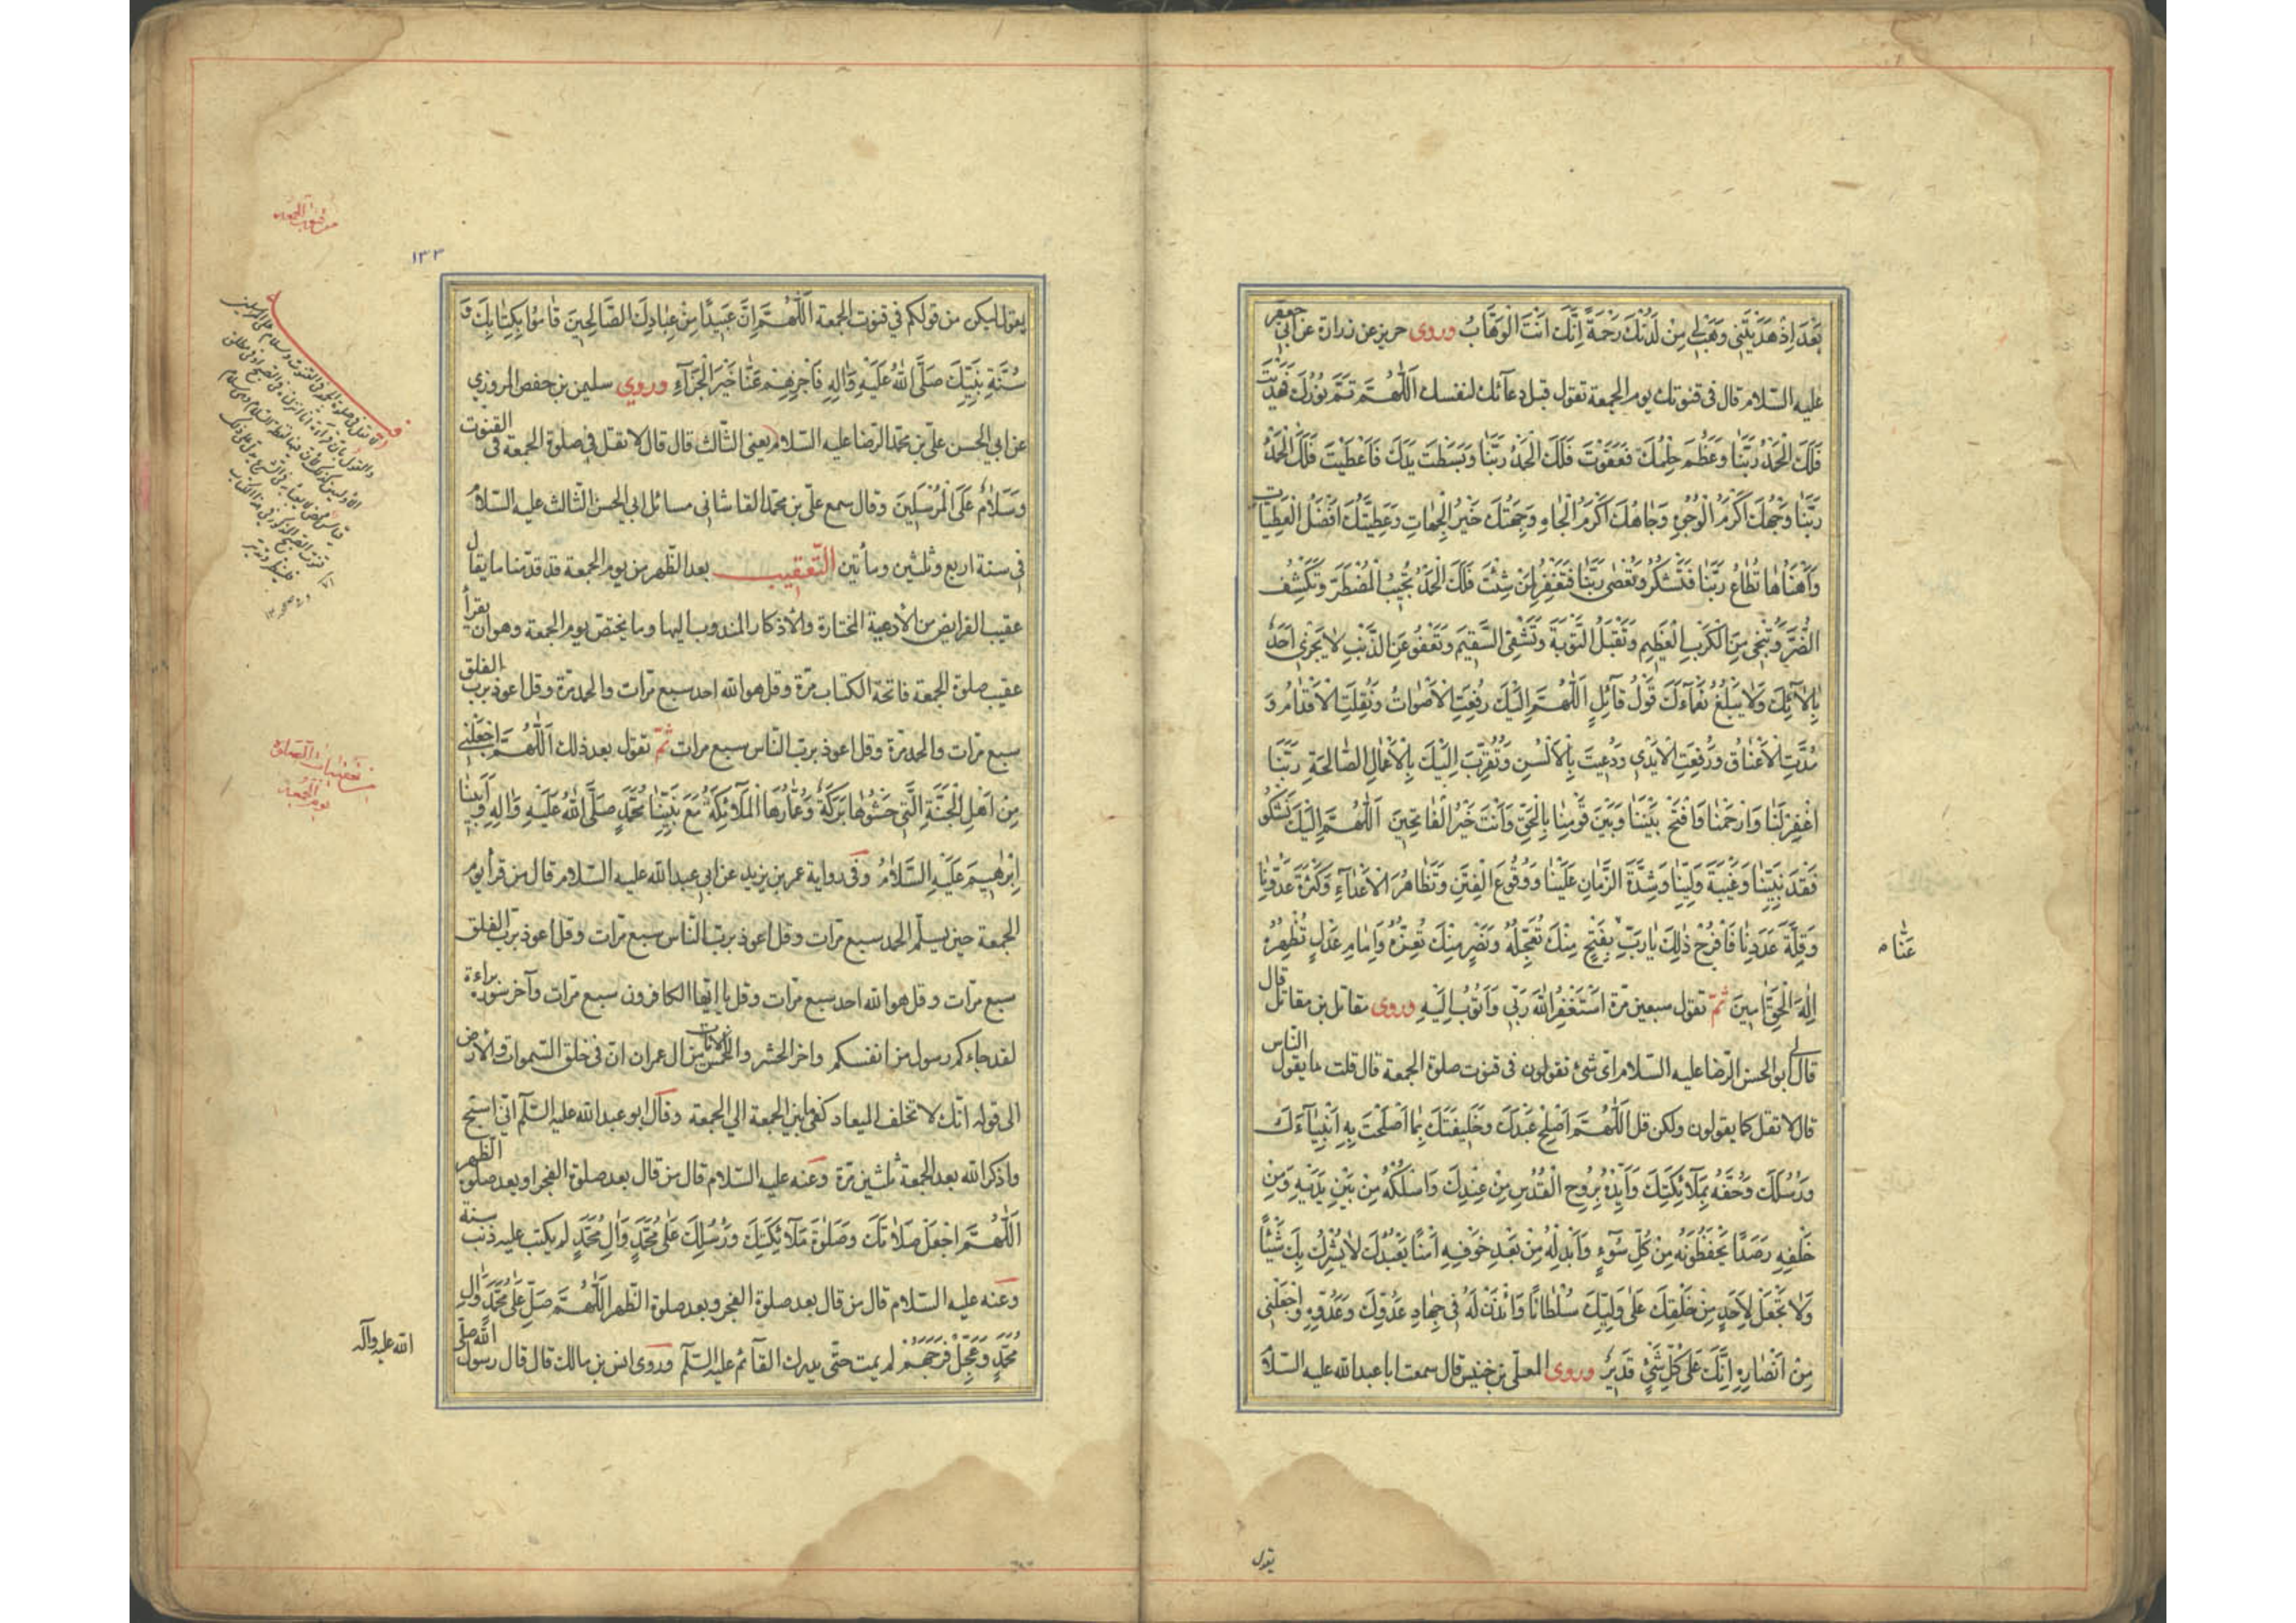 بَعْدَ اِذْ هَدَيْتَنِى وَهَبْ لِى مِنْ لَدُنْكَ رَحْمَةً اِنَّكَ اَنْتَ الْوَهَّابُ وروى حريز عن زرارة عن ابى جعفر
عليه السّلام قال فى قنوتك يوم الجمعة تقول قبل دعآئك لنفسك اَللّٰهُمَّ تَمَّ نُورُكَ فَهَدَيْتَ
فَلَكَ الْحَمْدُ رَبَّنَا وَعَظُمَ حِلْمُكَ فَعَفَوْتَ فَلَكَ الْحَمْدُ رَبَّنَا وَبَسَطْتَ يَدَكَ فَاَعْطَيْتَ فَلَكَ الْحَمْدُ
رَبَّنَا وَجْهُكَ اَكْرَمُ الْوُجُوهِ وَجَاهُكَ اَكْرَمُ الْجَاهِ وَجِهَتُكَ خَيْرُ الْجِهَاتِ وَعَطِيَّتُكَ اَفْضَلُ الْعَطِيَّاتِ
وَاَهْنَاهَا تُطَاعُ رَبَّنَا فَتَشْكُرُ وَتُعْصٰى رَبَّنَا فَتَغْفِرُ لِمَنْ شِئْتَ فَلَكَ الْحَمْدُ تُجِيبُ الْمُضْطَرَّ وَتَكْشِفُ
الضُّرَّ وَتُنْجِى مِنَ الْكَرْبِ الْعَظِيمِ وَتَقْبَلُ التَّوْبَةَ وَتَشْفِى السَّقِيمَ وَتَعْفُو عَنِ الذَّنْبِ لَا يَجْزِى اَحَدٌ
بِاٰلَآئِكَ وَلَا يَبْلُغُ نَعْمَآءَكَ قَوْلُ قَآئِلٍ اَللّٰهُمَّ اِلَيْكَ رُفِعَتِ الْاَصْوَاتُ وَنُقِلَتِ الْاَقْدَامُ وَ
مُدَّتِ الْاَعْنَاقُ وَرُفِعَتِ الْاَيْدِى وَدُعِيتَ بِالْاَلْسُنِ وَتُقُرِّبَ اِلَيْكَ بِالْاَعْمَالِ الصَّالِحَةِ رَبَّنَا
اغْفِرْ لَنَا وَارْحَمْنَا وَافْتَحْ بَيْنَنَا وَبَيْنَ قَوْمِنَا بِالْحَقِّ وَاَنْتَ خَيْرُ الْفَاتِحِينَ اَللّٰهُمَّ اِلَيْكَ نَشْكُو
فَقْدَ نَبِيِّنَا وَغَيْبَةَ وَلِيِّنَا وَشِدَّةَ الزَّمَانِ عَلَيْنَا وَوُقُوعَ الْفِتَنِ وَتَظَاهُرَ الْاَعْدَآءِ وَكَثْرَةَ عَدُوِّنَا
وَقِلَّةَ عَدَدِنَا فَافْرُجْ ذٰلِكَ يَارَبِّ بِفَتْحٍ مِنْكَ تُعَجِّلُهُ وَنَصْرٍ مِنْكَ تُعِزُّهُ وَاِمَامِ عَدْلٍ تُظْهِرُهُ
عَنَّا
اِلٰهَ الْحَقِّ اٰمِينَ ثمّ تقول سبعين مرّة اَسْتَغْفِرُ اللهَ رَبِّى وَاَتُوبُ اِلَيْهِ وروى مقاتل بن مقاتل قال
قال لى ابو الحسن الرّضا عليه السّلام اىّ شئ تقولون فى قنوت صلوة الجمعة قال قلت ما يقول النّاس
قال لا تقل كما يقولون ولكن قل اَللّٰهُمَّ اَصْلِحْ عَبْدَكَ وَخَلِيفَتَكَ بِمَا اَصْلَحْتَ بِهِ اَنْبِيَآءَكَ
وَرُسُلَكَ وَحُفَّهُ بِمَلَآئِكَتِكَ وَاَيِّدْهُ بِرُوحِ الْقُدُسِ مِنْ عِنْدِكَ وَاسْلُكْهُ مِنْ بَيْنِ يَدَيْهِ وَمِنْ
خَلْفِهِ رَصَدًا يَحْفَظُونَهُ مِنْ كُلِّ سُوٓءٍ وَاَبْدِلْهُ مِنْ بَعْدِ خَوْفِهِ اَمْنًا يَعْبُدُكَ لَا يُشْرِكُ بِكَ شَيْئًا
وَلَا تَجْعَلْ لِاَحَدٍ مِنْ خَلْقِكَ عَلٰى وَلِيِّكَ سُلْطَانًا وَائْذَنْ لَهُ فِى جِهَادِ عَدُوِّكَ وَعَدُوِّهِ وَاجْعَلْنِى
مِنْ اَنْصَارِهِ اِنَّكَ عَلٰى كُلِّ شَىْءٍ قَدِيرٌ وروى المعلّى بن خنيس قال سمعت ابا عبدالله عليه السّلام
يقول
١٣٣
يقول ليكن من قولكم فى قنوت الجمعة اَللّٰهُمَّ اِنَّ عَبِيدًا مِنْ عِبَادِكَ الصَّالِحِينَ قَامُوا بِكِتَابِكَ وَ
سُنَّةِ نَبِيِّكَ صَلَّى اللهُ عَلَيْهِ وَاٰلِهِ فَاجْزِهِمْ عَنَّا خَيْرَ الْجَزَآءِ وروى سليمن بن حفص المروزى
عن ابى الحسن علىّ بن محمّد الرّضا عليه السّلام يعنى الثّالث قال قال لا تقل فى صلوة الجمعة فى القنوت
وَسَلَامٌ عَلَى الْمُرْسَلِينَ وقال سمع علىّ بن محمّد القاشانى مسائل ابى الحسن الثّالث عليه السّلام
فى سنة اربع وثلثين ومأتين التّعقيب بعد الظّهر من يوم الجمعة قد قدّمنا ما يقال
عقيب الفرايض من الأدعية المختارة والأذكار المندوب اليها وما يختصّ يوم الجمعة وهو ان يقرأ
عقيب صلوة الجمعة فاتحة الكتاب مرّة وقل هو الله احد سبع مرّات والحمد مرّة وقل اعوذ بربّ الفلق
سبع مرّات والحمد مرّة وقل اعوذ بربّ النّاس سبع مرات ثمّ تقول بعد ذلك اَللّٰهُمَّ اجْعَلْنِى
مِنْ اَهْلِ الْجَنَّةِ الَّتِى حَشْوُهَا بَرَكَةٌ وَعُمَّارُهَا الْمَلَآئِكَةُ مَعَ نَبِيِّنَا مُحَمَّدٍ صَلَّى اللهُ عَلَيْهِ وَاٰلِهِ وَاَبِينَا
اِبْرٰهِيمَ عَلَيْهِ السَّلَامُ وفى رواية عمر بن يزيد عن ابى عبدالله عليه السّلام قال من قرأ يوم
الجمعة حين يسلّم الحمد سبع مرّات وقل اعوذ بربّ النّاس سبع مرّات وقل اعوذ بربّ الفلق
سبع مرّات وقل هو الله احد سبع مرّات وقل يا ايّها الكافرون سبع مرّات وآخر سورة براءة
لقد جاءكم رسول من انفسكم واخر الحشر والخمس الايات من ال عمران انّ فى خلق السّموات والأرض
الى قوله انّك لا تخلف الميعاد كفى ما بين الجمعة الى الجمعة وقال ابو عبدالله عليه السّلم انّى اسبّح
واذكر الله بعد الجمعة ثلثين مرّة وعنه عليه السّلام قال من قال بعد صلوة الفجر او بعد صلوة الظّهر
اَللّٰهُمَّ اجْعَلْ صَلَاتَكَ وَصَلٰوةَ مَلَآئِكَتِكَ وَرُسُلِكَ عَلٰى مُحَمَّدٍ وَاٰلِ مُحَمَّدٍ لم يكتب عليه ذنب سنة
وعنه عليه السّلام قال من قال بعد صلوة الفجر وبعد صلوة الظّهر اَللّٰهُمَّ صَلِّ عَلٰى مُحَمَّدٍ وَاٰلِ
مُحَمَّدٍ وَعَجِّلْ فَرَجَهُمْ لم يمت حتّى يدرك القآئم عليه السّلم وروى انس بن مالك قال قال رسول الله صلّى
الله عليه وآله
تعقيبات الصلوة
يوم الجمعة